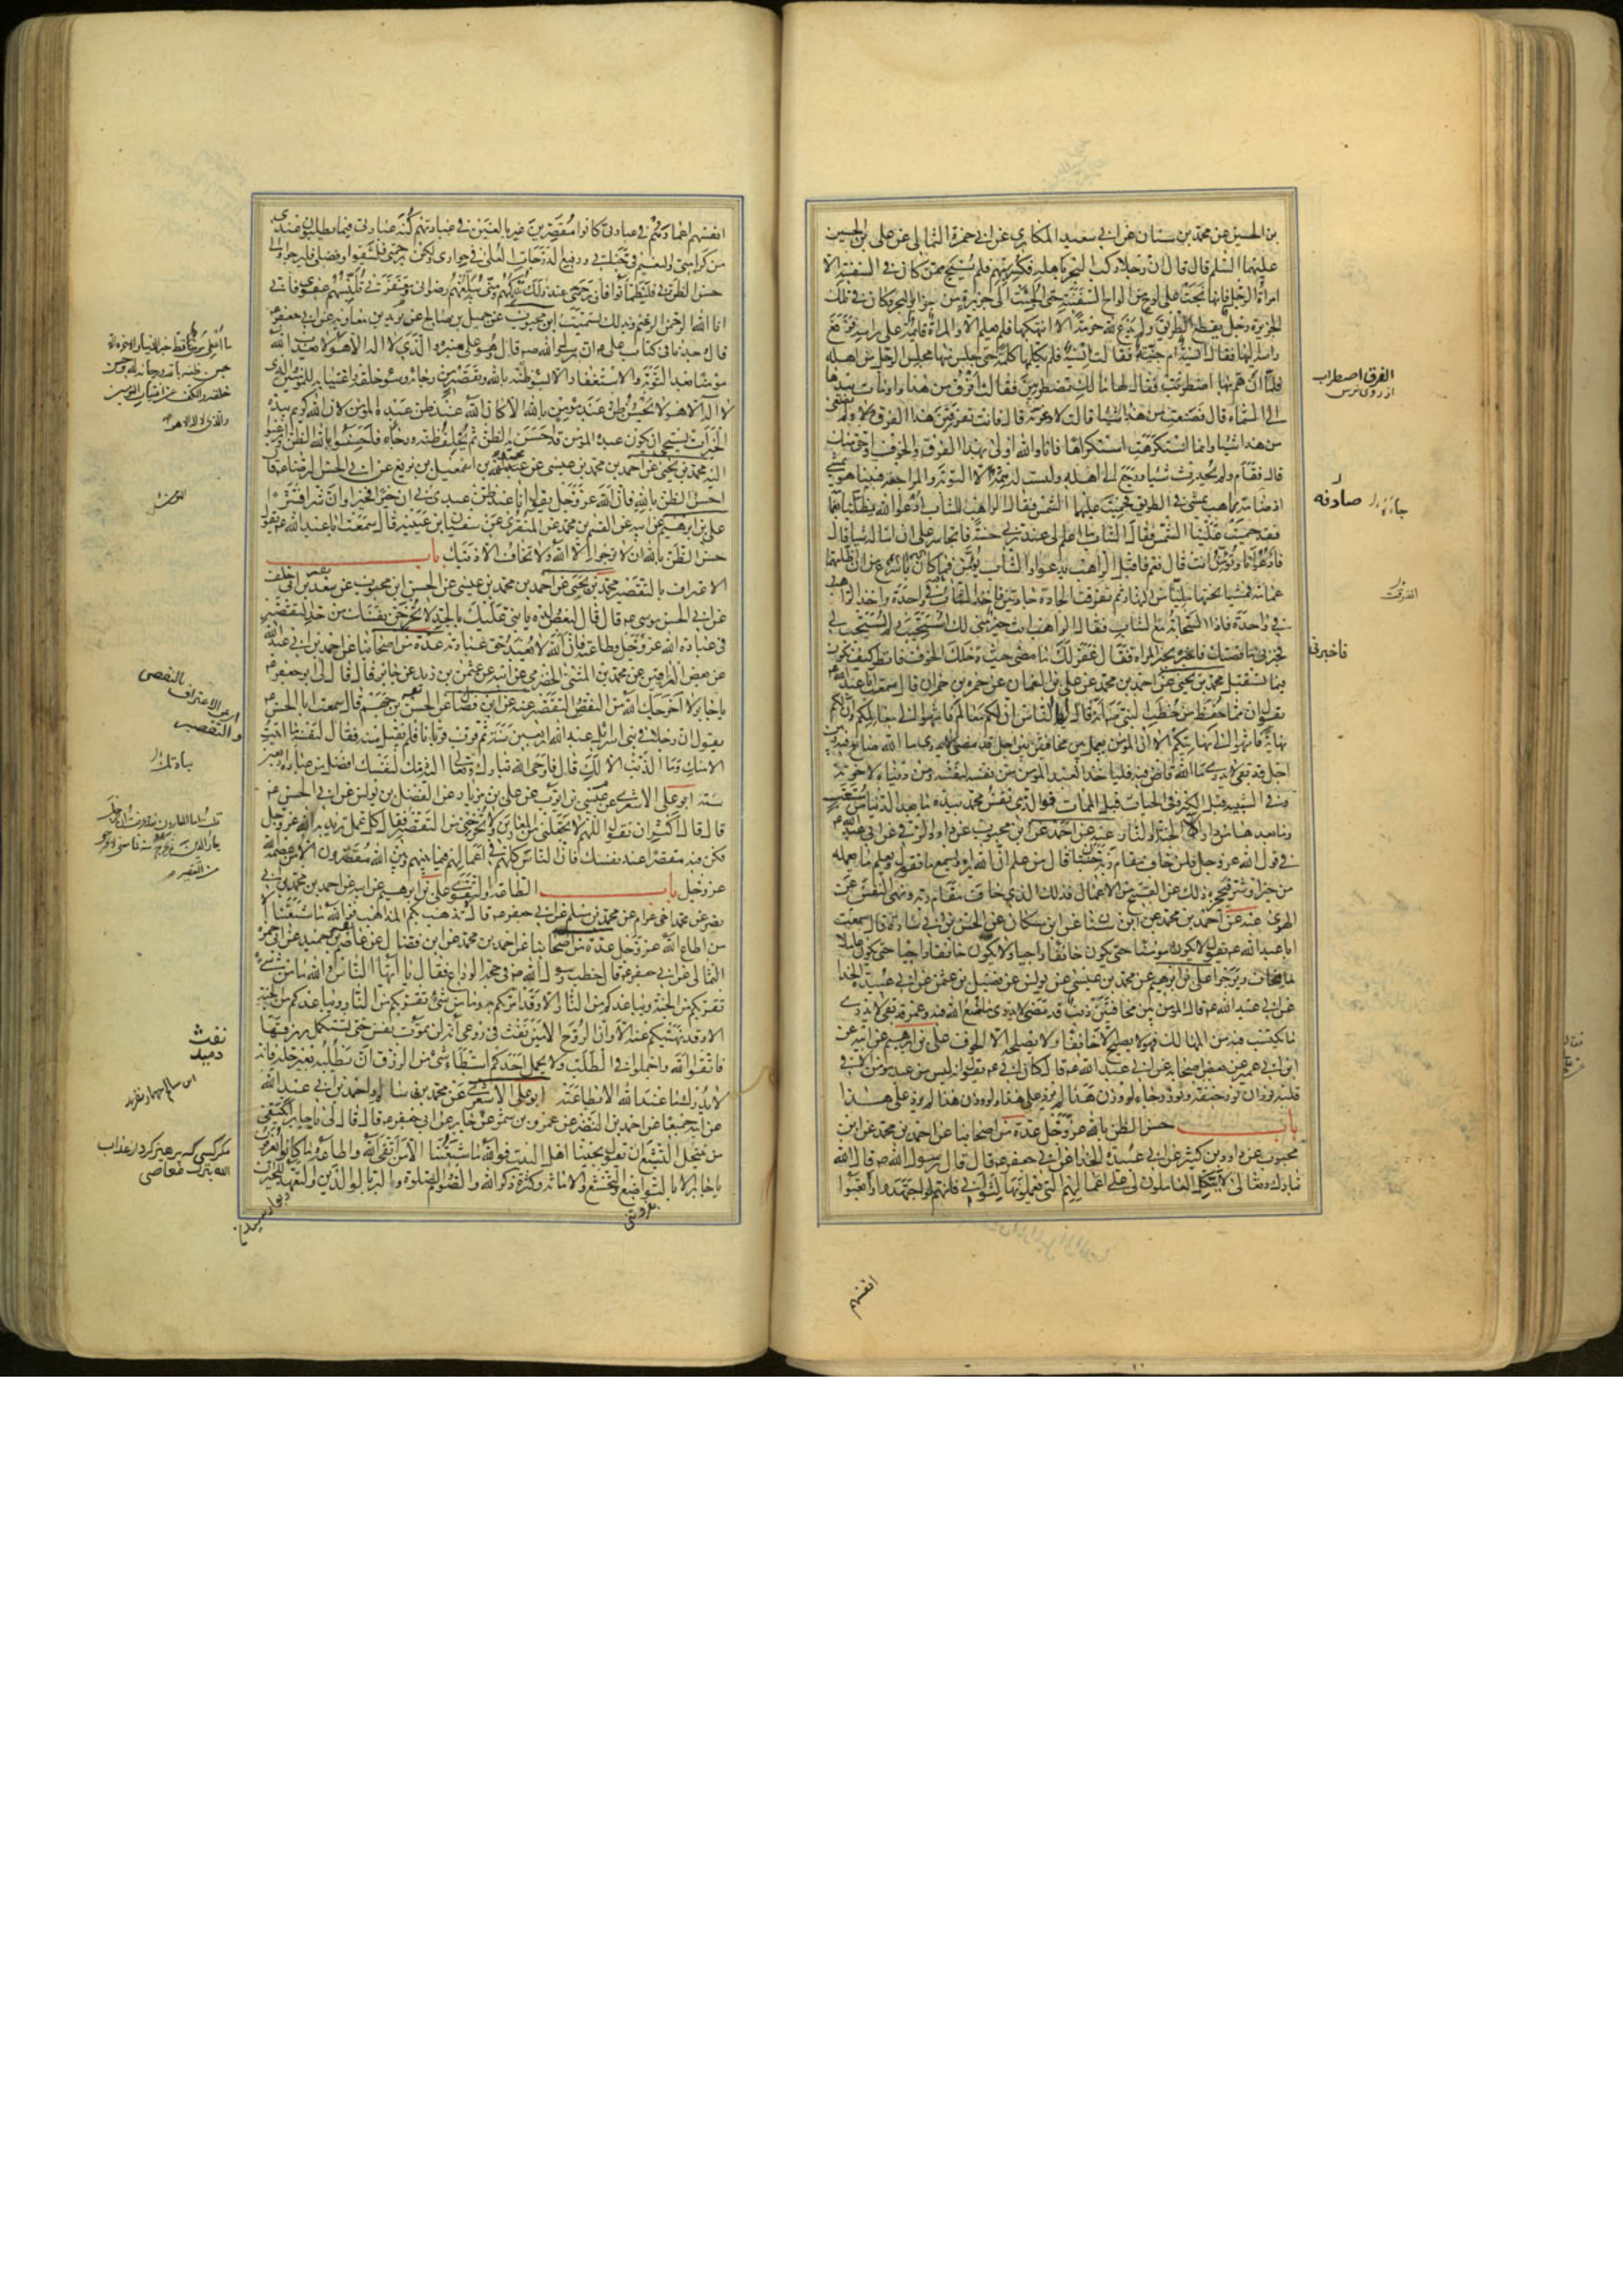 بن الحسين عن محمد بن سنان عن ابي سعيد المكاري عن ابي حمزة الثمالي عن علي بن الحسين
عليهما السلم قال قال ان رجلا ركب البحر باهله فكسر بهم فلم ينج ممن كان في السفينة الا
امرأة الرجل فانها نجت على لوح من الواح السفينة حتى الجئت الى جزيرة من جزاير البحر وكان في تلك
الجزيرة رجل يقطع الطريق ولم يدع لله حرمة الا انتهكها فلم يعلم الا والمرأة قائمة على راسه فرفع
راسه اليها فقال انسية ام جنية فقالت انسية فلم يكلمها كلمة حتى جلس منها مجلس الرجل من اهله
فلما ان هم بها اضطربت فقال لها مالك تضطربين فقالت افرق من هذا واومأت بيدها
الى السماء قال فصنعت من هذا شيئا قالت لا وعزته قال فانت تفرقين منه هذا الفرق ولم تصنعي
من هذا شيئا وانما استكرهتك استكراها فانا والله اولى بهذا الفرق والخوف واحق منك
قال فقام ولم يحدث شيئا ورجع الى اهله وليست له همة الا التوبة والمراجعة فبينا هو يمشي
اذ صادفه راهب يمشي في الطريق فحميت عليهما الشمس فقال الراهب للشاب ادعوا الله يظلنا بغمامة
فقد حميت علينا الشمس فقال الشاب ما اعلم ان لي عند ربي حسنة فاتجاسر على ان اساله شيئا قال
فادعو انا وتؤمن انت قال نعم فاقبل الراهب يدعوا والشاب يؤمن فما كان باسرع من ان اظلتهما
غمامة فمشيا تحتها مليا من النهار ثم تفرقت الجادة جادتين فاخذ الشاب في واحدة واخذ الراهب
في واحدة فاذا السحابة مع الشاب فقال الراهب انت خير مني لك استجيب ولم يستجب لي
فخبرني ما قصتك فاخبره بخبر المراة فقال غفر لك ما مضى حيث دخلك الخوف فانظر كيف تكون
فيما تستقبل محمد بن يحيى عن احمد بن محمد عن علي بن النعمان عن حمزة بن حمران قال سمعت ابا عبد الله
يقول ان مما حفظ من خطب النبي ص انه قال يا ايها الناس ان لكم معالم فانتهوا الى معالمكم وان لكم
نهاية فانتهوا الى نهايتكم الا ان المؤمن يعمل بين مخافتين بين اجل قد مضى لا يدري ما الله صانع فيه وبين
اجل قد بقي لا يدري ما الله قاض فيه فلياخذ العبد المؤمن من نفسه لنفسه ومن دنياه لاخرته
وفي الشبيبة قبل الكبر وفي الحيات قبل الممات فوالذي نفس محمد بيده ما بعد الدنيا من مستعتب
وما بعدها من دار الا الجنة او النار عنه عن احمد عن ابن محبوب عن داود الرقي عن ابي عبد الله
في قول الله عز وجل ولمن خاف مقام ربه جنتان قال من علم ان الله يراه ويسمع ما يقول ويعلم ما يعمله
من خير او شر فيحجزه ذلك عن القبيح من الاعمال فذلك الذي خاف مقام ربه ونهى النفس عن
الهوى عنه عن احمد بن محمد عن ابن سنان عن ابن مسكان عن الحسن بن ابي سارة قال سمعت
ابا عبد الله ع يقول لا يكون مؤمنا حتى يكون خائفا راجيا ولا يكون خائفا راجيا حتى يكون عاملا
لما يخاف ويرجوا علي بن ابرهيم عن محمد بن عيسى عن يونس عن فضيل بن عثمن عن ابي عبيدة الحذا
عن ابي عبد الله ع قال المؤمن بين مخافتين ذنب قد مضى لا يدري ما صنع الله فيه وعمر قد بقي لا يدري
ما يكتسب فيه من المهالك فهو لا يصبح الا خائفا ولا يصلحه الا الخوف علي بن ابرهيم عن ابيه عن
ابن ابي عمير عن بعض اصحابه عن ابي عبد الله ع قال كان ابي ع يقول انه ليس من عبد مؤمن الا في
قلبه نوران نور خيفة ونور رجاء لو وزن هذا لم يزد على هذا ولو وزن هذا لم يزد على هذا
باب حسن الظن بالله عز وجل عدة من اصحابنا عن احمد بن محمد عن ابن
محبوب عن داود بن كثير عن ابي عبيدة الحذا عن ابي جعفر ع قال قال رسول الله ص قال الله
تبارك وتعالى لا يتكل العاملون لي على اعمالهم التي يعملونها لثوابي فانهم لو اجتهدوا واتعبوا
انفسهم
الفرق اضطراب
از روى ترس
صادفه
افترقت
فاخبرني
انفسهم اعمارهم في عبادتي كانوا مقصرين غير بالغين في عبادتهم كنه عبادتي فيما يطلبون عندي
من كرامتي والنعيم في جناتي ورفيع الدرجات العلى في جواري ولكن برحمتي فليثقوا وفضلي فليرجوا والى
حسن الظن بي فليطمئنوا فان رحمتي عند ذلك تدركهم ومني يبلغهم رضواني ومغفرتي تلبسهم عفوي فاني
انا الله الرحمن الرحيم وبذلك تسميت ابن محبوب عن جميل بن صالح عن بريد بن معاوية عن ابي جعفر ع
قال وجدنا في كتاب علي ع ان رسول الله ص قال وهو على منبره والذي لا اله الا هو لا يعذب الله
مؤمنا بعد التوبة والاستغفار الا بسوء ظنه بالله وتقصيره من رجائه وسوء خلقه واغتيابه للمؤمنين والذي
لا اله الا هو لا يحسن ظن عبد مؤمن بالله الا كان الله عند ظن عبده المؤمن لان الله كريم بيده
الخيرات يستحيي ان يكون عبده المؤمن قد احسن به الظن ثم يخلف ظنه ورجاءه فاحسنوا بالله الظن وارغبوا
اليه محمد بن يحيى عن احمد بن محمد بن عيسى عن محمد بن اسمعيل بن بزيع عن ابي الحسن الرضا ع قال
احسن الظن بالله فان الله عز وجل يقول انا عند ظن عبدي بي ان خيرا فخيرا وان شرا فشرا
علي بن ابرهيم عن ابيه عن القسم بن محمد عن المنقري عن سفين ابن عيينة قال سمعت ابا عبد الله ع يقول
حسن الظن بالله ان لا ترجوا الا الله ولا تخاف الا ذنبك باب
الاعتراف بالتقصير محمد بن يحيى عن احمد بن محمد بن عيسى عن الحسن ابن محبوب عن سعد بن ابي خلف
عن ابي الحسن موسى ع قال قال لبعض ولده يا بني عليك بالجد لا تخرجن نفسك من حد التقصير
في عبادة الله عز وجل وطاعته فان الله لا يعبد حق عبادته عدة من اصحابنا عن احمد بن ابي عبد الله
عن بعض العراقيين عن محمد بن المثنى الحضرمي عن ابيه عن عثمن بن زيد عن جابر قال قال لي ابو جعفر ع
يا جابر لا اخرجك الله من النقص والتقصير عنه عن ابن فضال عن الحسن بن جهم قال سمعت ابا الحسن
يقول ان رجلا في بني اسرائيل عبد الله اربعين سنة ثم قرب قربانا فلم يقبل منه فقال لنفسه ما اتيت
الا منك وما الذنب الا لك قال فاوحى الله تبارك وتعالى اليه ذمك لنفسك افضل من عبادتك اربعين
سنة ابو علي الاشعري عن عيسى بن ايوب عن علي بن مهزيار عن الفضل بن يونس عن ابي الحسن ع
قال قال اكثر ان تقول اللهم لا تجعلني من المعارين ولا تخرجني من التقصير فقال كل عمل تريد به الله عز وجل
فكن فيه مقصرا عند نفسك فان الناس كلهم في اعمالهم فيما بينهم وبين الله مقصرون الا من عصمه الله
عز وجل باب الطاعة والتقوى علي بن ابرهيم عن ابيه عن احمد بن محمد بن ابي
نصر عن محمد اخي عرام عن محمد بن مسلم عن ابي جعفر ع قال لا تذهب بكم المذاهب فوالله ما شيعتنا الا
من اطاع الله عز وجل عدة من اصحابنا عن احمد بن محمد عن ابن فضال عن عاصم بن حميد عن ابي حمزة
الثمالي عن ابي جعفر ع قال خطب رسول الله ص في حجة الوداع فقال يا ايها الناس والله ما من شيء
يقربكم من الجنة ويباعدكم من النار الا وقد امرتكم به وما من شيء يقربكم من النار ويباعدكم من الجنة
الا وقد نهيتكم عنه الا وان الروح الامين نفث في روعي انه لن تموت نفس حتى تستكمل رزقها
فاتقوا الله واجملوا في الطلب ولا يحمل احدكم استبطاء شيء من الرزق ان يطلبه بغير حله فانه
لا يدرك ما عند الله الا بطاعته ابو علي الاشعري عن محمد بن سالم واحمد بن ابي عبد الله
عن ابيه جميعا عن احمد بن النضر عن عمرو بن شمر عن جابر عن ابي جعفر ع قال قال لي يا جابر ايكتفي
من ينتحل التشيع ان يقول بحبنا اهل البيت فوالله ما شيعتنا الا من اتقى الله واطاعه وما كانوا يعرفون
يا جابر الا بالتواضع والتخشع والامانة وكثرة ذكر الله والصوم والصلوة والبر بالوالدين والتعهد للجيران
بالنقص
اي عن الاعتراف
والتقصير
نفث
دميد
مكر كسى كه پرهيز كرد از عذاب
الله بترك معاصى